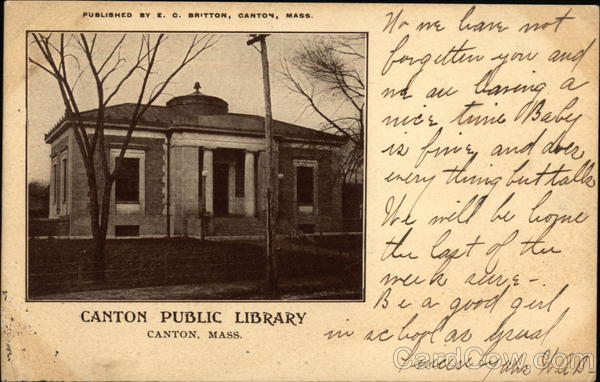 PUBLISHED BY E. C. BRITTON, CANTON, MASS.
No we have not
forgotten you and
we are having a
nice time Baby
is fine and does
every thing but talk
We will be home
the last of the
week sure -
Be a good girl
in school as usual
CANTON PUBLIC LIBRARY
CANTON, MASS.
CardCow.com